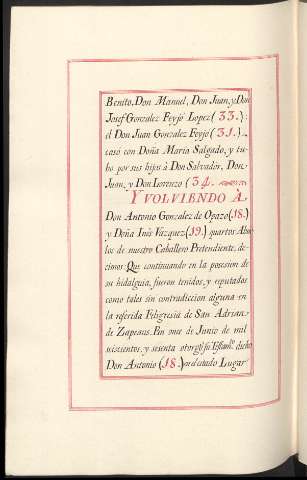 Benito, Don Manuel, Don Juan, y Don
Josef Gonzalez Feyjó Lopez (33.):
el Don Juan Gonzalez Feyjó (31.)
casó con Doña Maria Salgado, y tu-
bo por sus hijos à Don Salvador, Don
Juan, y Don Lorenzo (34.
Y VOLVIENDO A
Don Antonio Gonzalez de Opazo (18.)
y Doña Inés Vazquez (19.) quartos Abue-
los de nuestro Caballero Pretendiente, de-
cimos: Que continuando en la posesion de
su hidalguia, fueron tenidos, y reputados
como tales sin contradiccion alguna en
la referida Feligresia de San Adrian
de Zapeaus. En once de Junio de mil
seiscientos, y sesenta otorgó su Testam.to dicho
Don Antonio (18.) en el citado Lugar